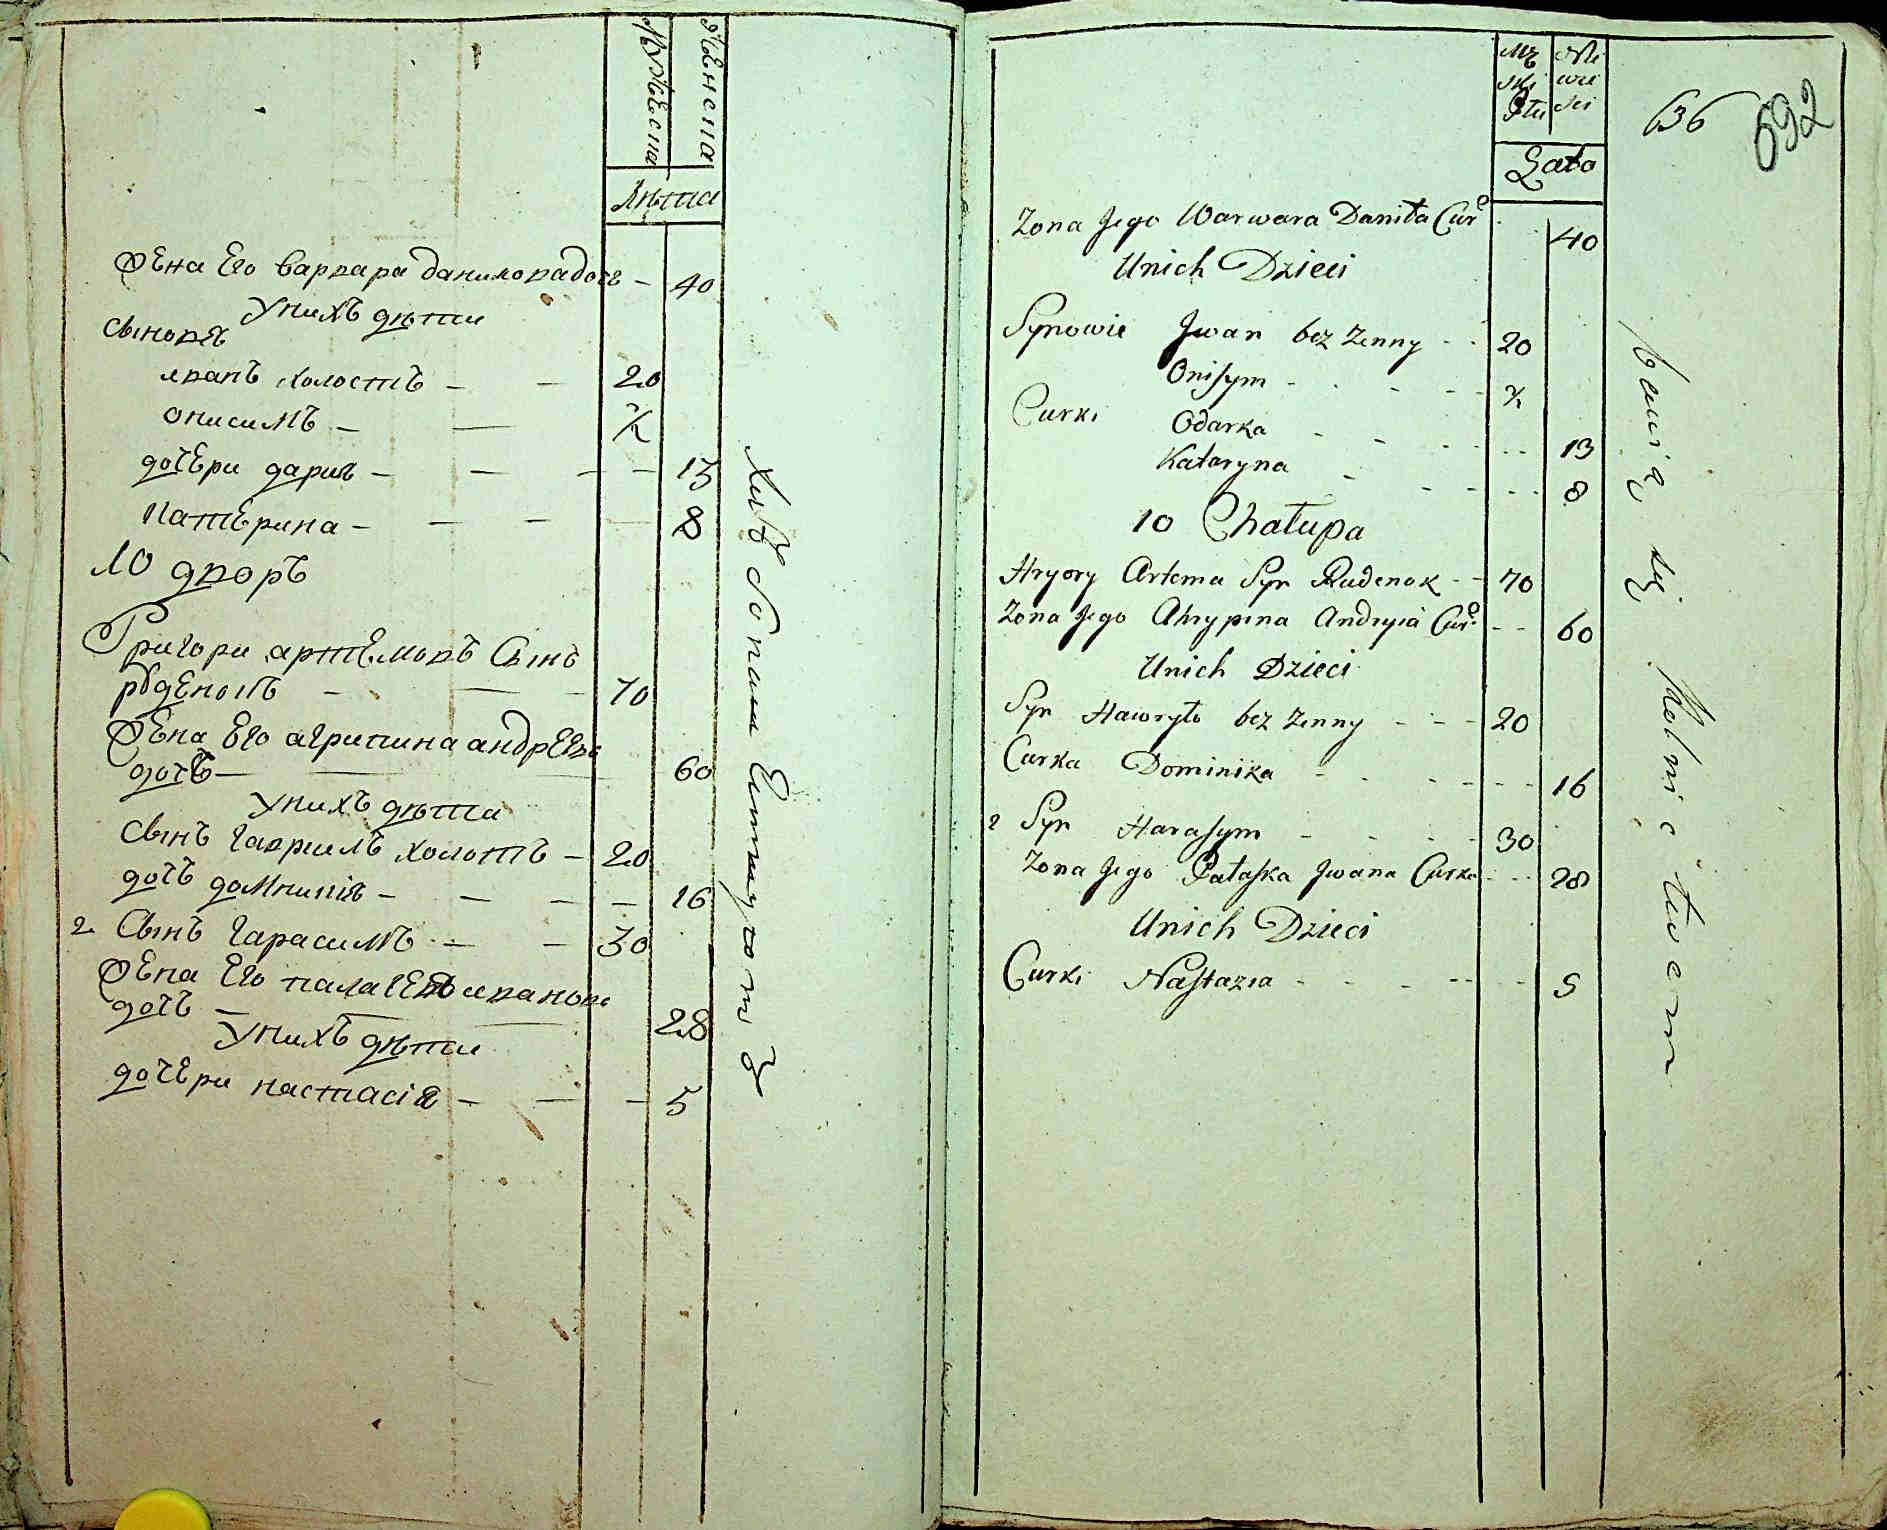 Мужеска
Женска
Лѣта
Жена Его варвара данилова дочь 40
У нихъ дѣти
Сыновя
иванъ холостъ 20
онисимъ 7
дочери дария 13
катерина 8
10 дворъ
Григори артемовъ Сынъ
руденокъ 70
Жена Его агрипина андреева
дочь 60
У нихъ дѣти
Сынъ гавриилъ холостъ 20
дочь домникия 16
2 Сынъ гарасимъ 30
Жена Его палагея иванова
дочь 28
У нихъ дѣти
дочери настасія 5
Mę
ski
Płci
Nie
wie
ści
Lata
636
692
Zona Jego Warwara Daniła Cur. 40
Unich Dzieci
Synowie Jwan bez Zenny 20
Onisym 7
Curki Odarka 13
Kataryna 8
10 Chałupa
Hryory Artema Syn Rudenok 70
Zona Jego Ahrypina Andryia Cur. 60
Unich Dzieci
Syn Hawryło bez Zenny 20
Curka Dominika 16
2 Syn Harasym 30
Zona Jego Pałaska Jwana Curka 28
Unich Dzieci
Curki Nastazia 5
bawią się Rolnictwem